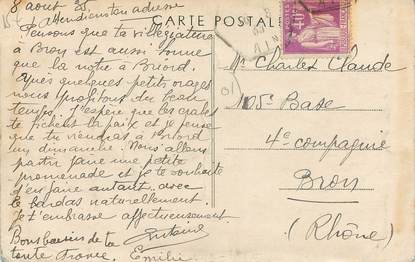 8 août 35.
J'attendais ton adresse
CARTE POSTALE
Pensons que ta villégiature
à Bron est aussi bonne
que la nôtre à Briord.
Après quelques petits orages
nous profitons du beau
temps. J'espère que les
te fichent la paix et je pense
que tu viendras à Briord
un dimanche. Nous allons
partir faire une petite
promenade et je te souhaite
d'en faire autant avec
le bardas naturellement.
Je t'embrasse affectueusement
Antoine
Bons baisers de ta
tante
Mr Charles Claude
105e Base
4e compagnie
Bron
(Rhône)
40c